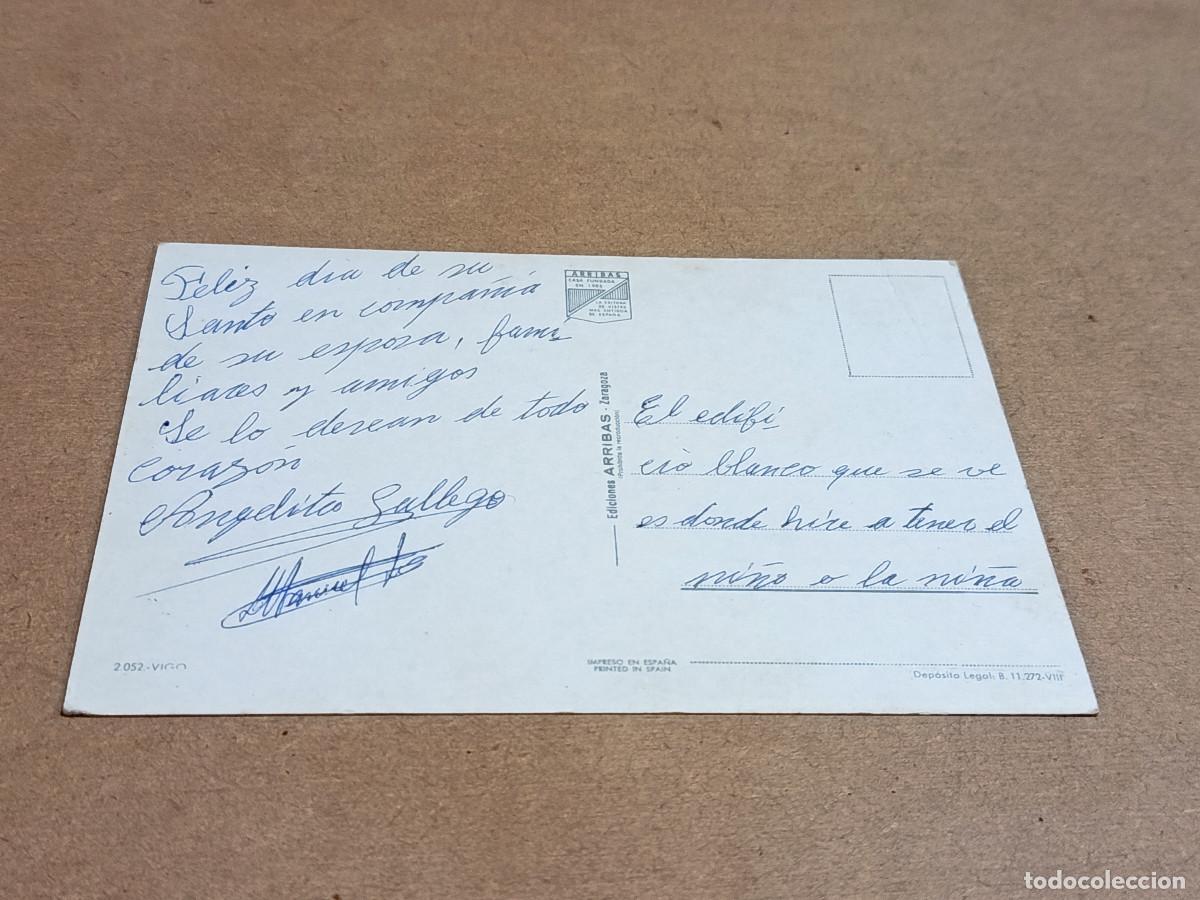 Feliz dia de su
Santo en compañia
de su esposa, fami
liares y amigos
Se lo desean de todo
corazón
Angelita Gallego
Manuel
2.052.-VIGO
ARRIBAS
CASA FUNDADA
EN 1905
LA EDITORA
DE VISTAS
MAS ANTIGUA
DE ESPAÑA
Ediciones ARRIBAS - Zaragoza
(Prohibida la reproducción)
El edifi
cio blanco que se ve
es donde hire a tener el
niño o la niña
IMPRESO EN ESPAÑA
PRINTED IN SPAIN
Depósito Legal: B. 11.272-VIII
todocoleccion